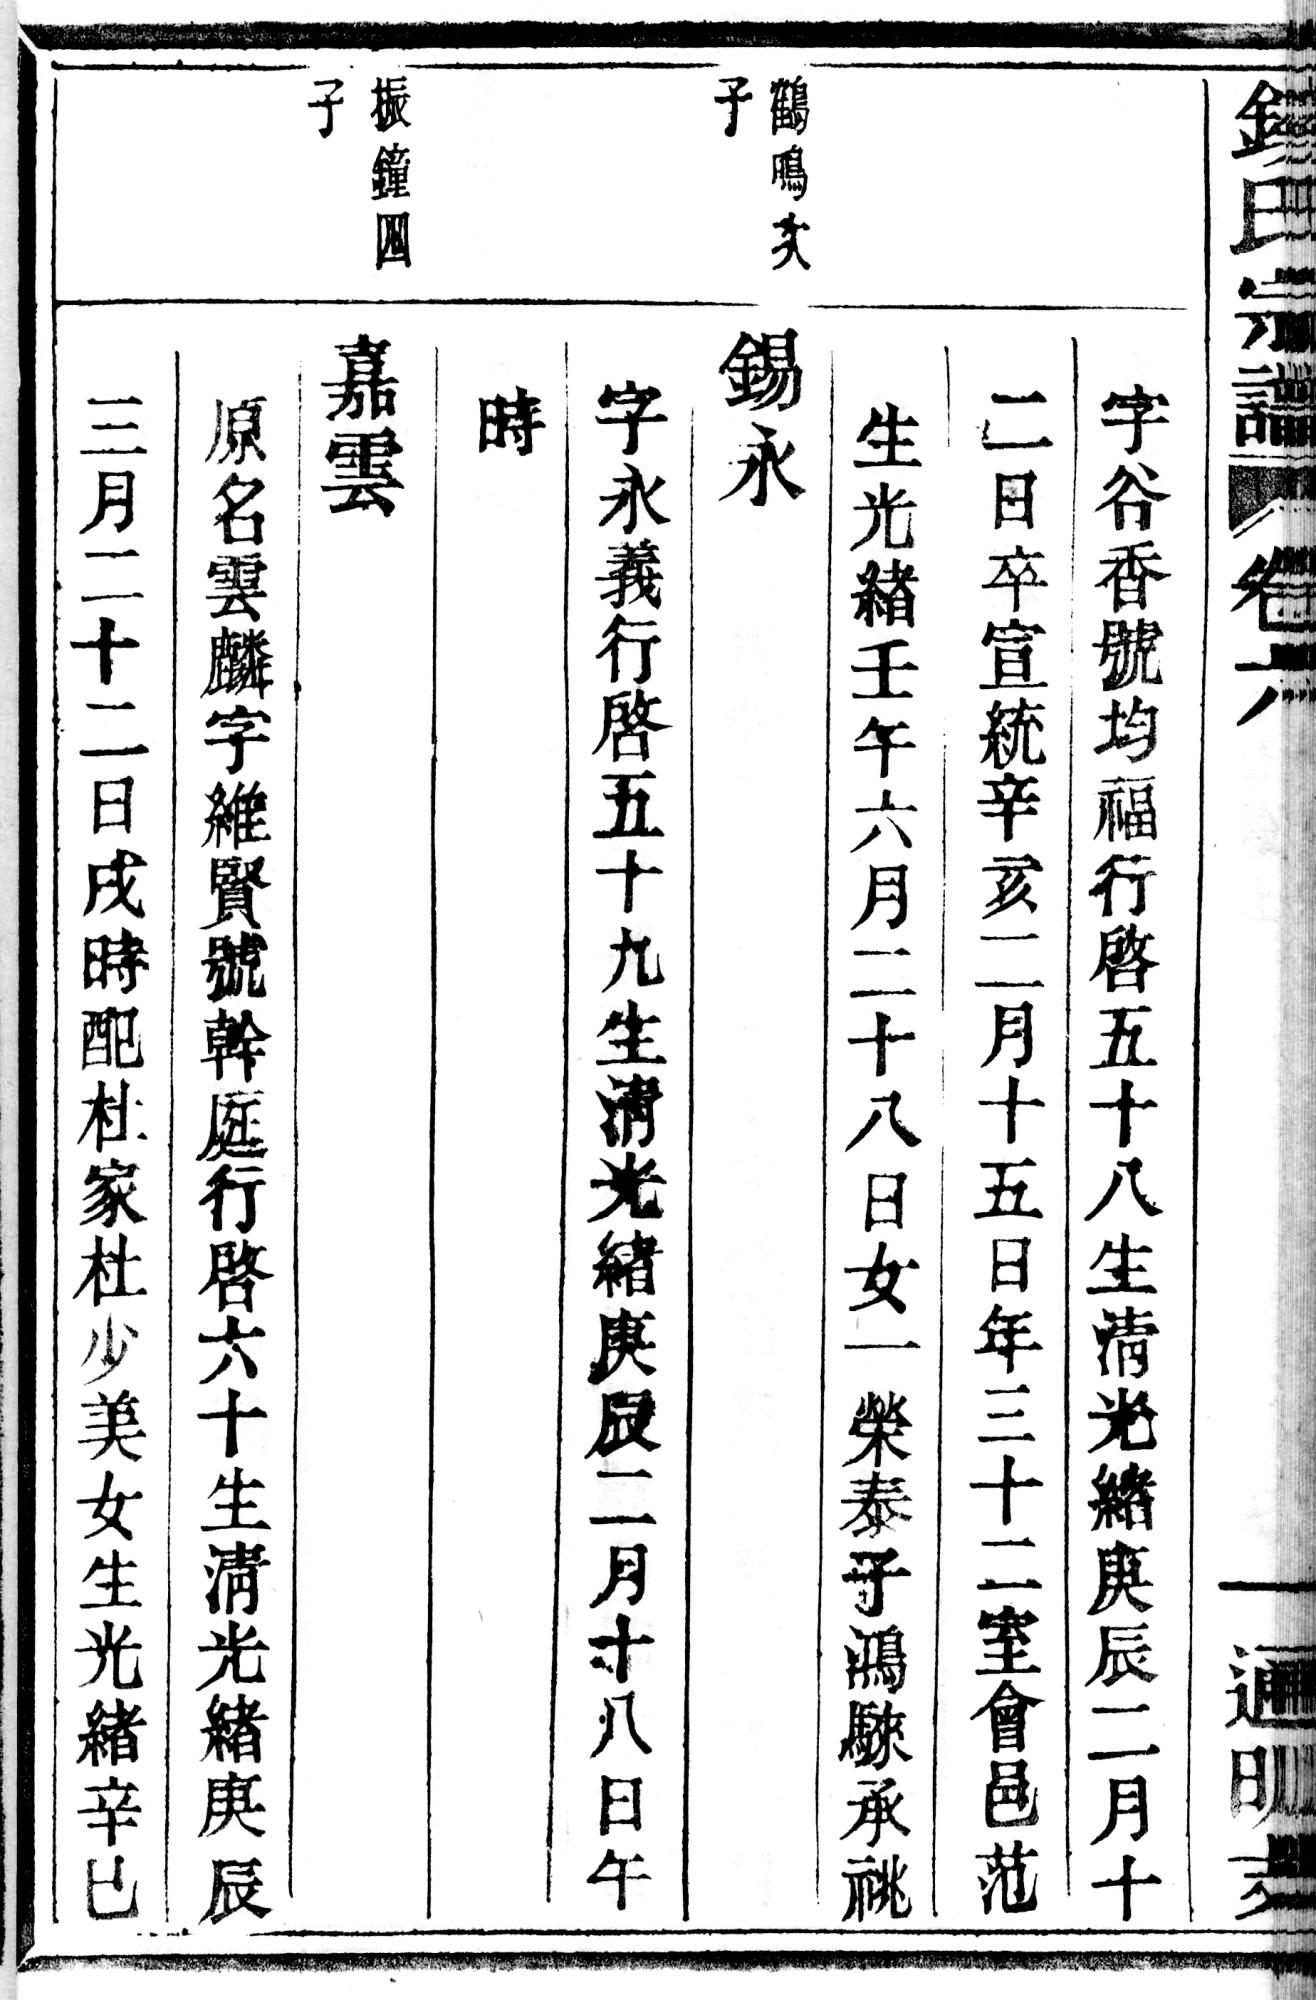 氏宗譜 卷六 一 通明支
字谷香號均福行啓五十八生清光緒庚辰二月十
二日卒宣統辛亥二月十五日年三十二室會邑范
生光緒壬午六月二十八日女一榮泰子鴻騋承祧
鶴鳴次
子
錫永
字永義行啓五十九生清光緒庚辰二月十八日午
時
振鐘四
子
嘉雲
原名雲麟字維賢號幹庭行啓六十生清光緒庚辰
三月二十二日戌時配杜家杜少美女生光緒辛巳